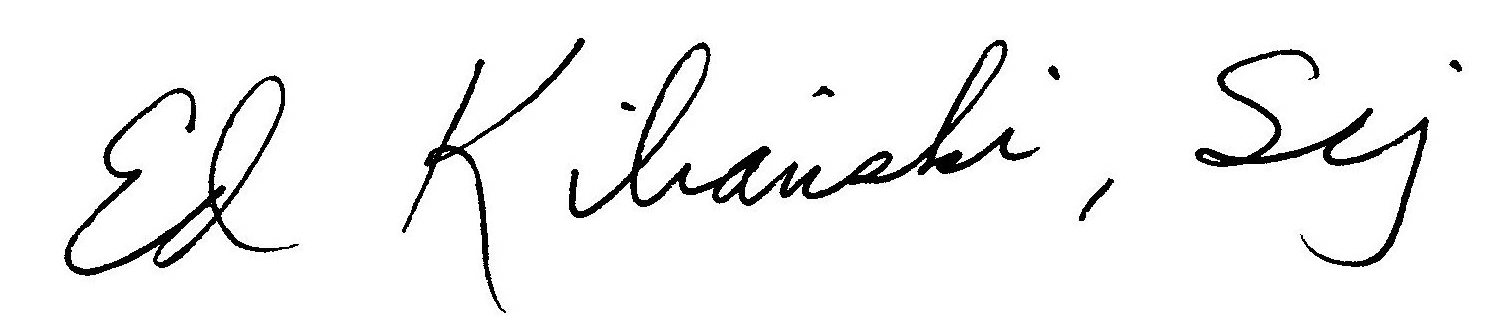 Ed Kilianski, scj